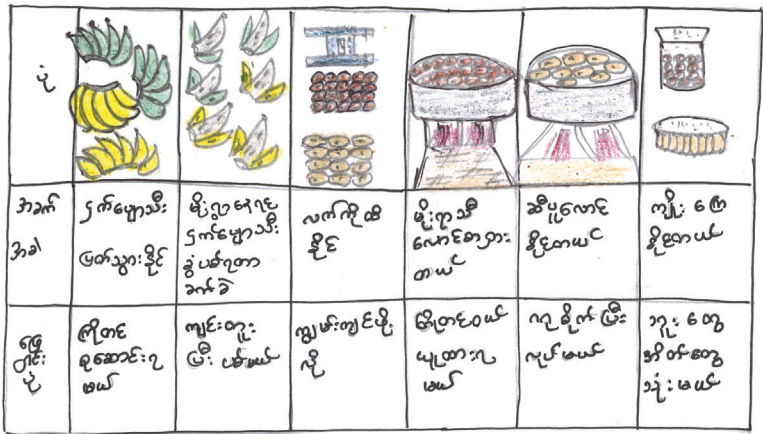 ပုံ
အခက်
အခါ
ငှက်ပျောသီး
ပြတ်သွားနိုင်
မိုးရွာနေရင်
ငှက်ပျောသီး
ခွံပစ်ရတာ
ခက်ခဲ
လက်ကိုထိ
နိုင်
မိုးရာသီ
လောင်စာရှား
တယ်
ဆီပူလောင်
နိုင်တယ်
ကျိုးကြေ
နိုင်တယ်
ဖြေ
ရှင်း
ပုံ
ကြိုတင်
စုဆောင်းရ
မယ်
ကျင်းတူး
ပြီး ပစ်မယ်
ကျွမ်းကျင်ဖို့
လို
ကြိုတင်ဝယ်
ယူထားရ
မယ်
ဂရုစိုက်ပြီး
လုပ်မယ်
ဘူးတွေ
အိတ်တွေ
သုံးမယ်